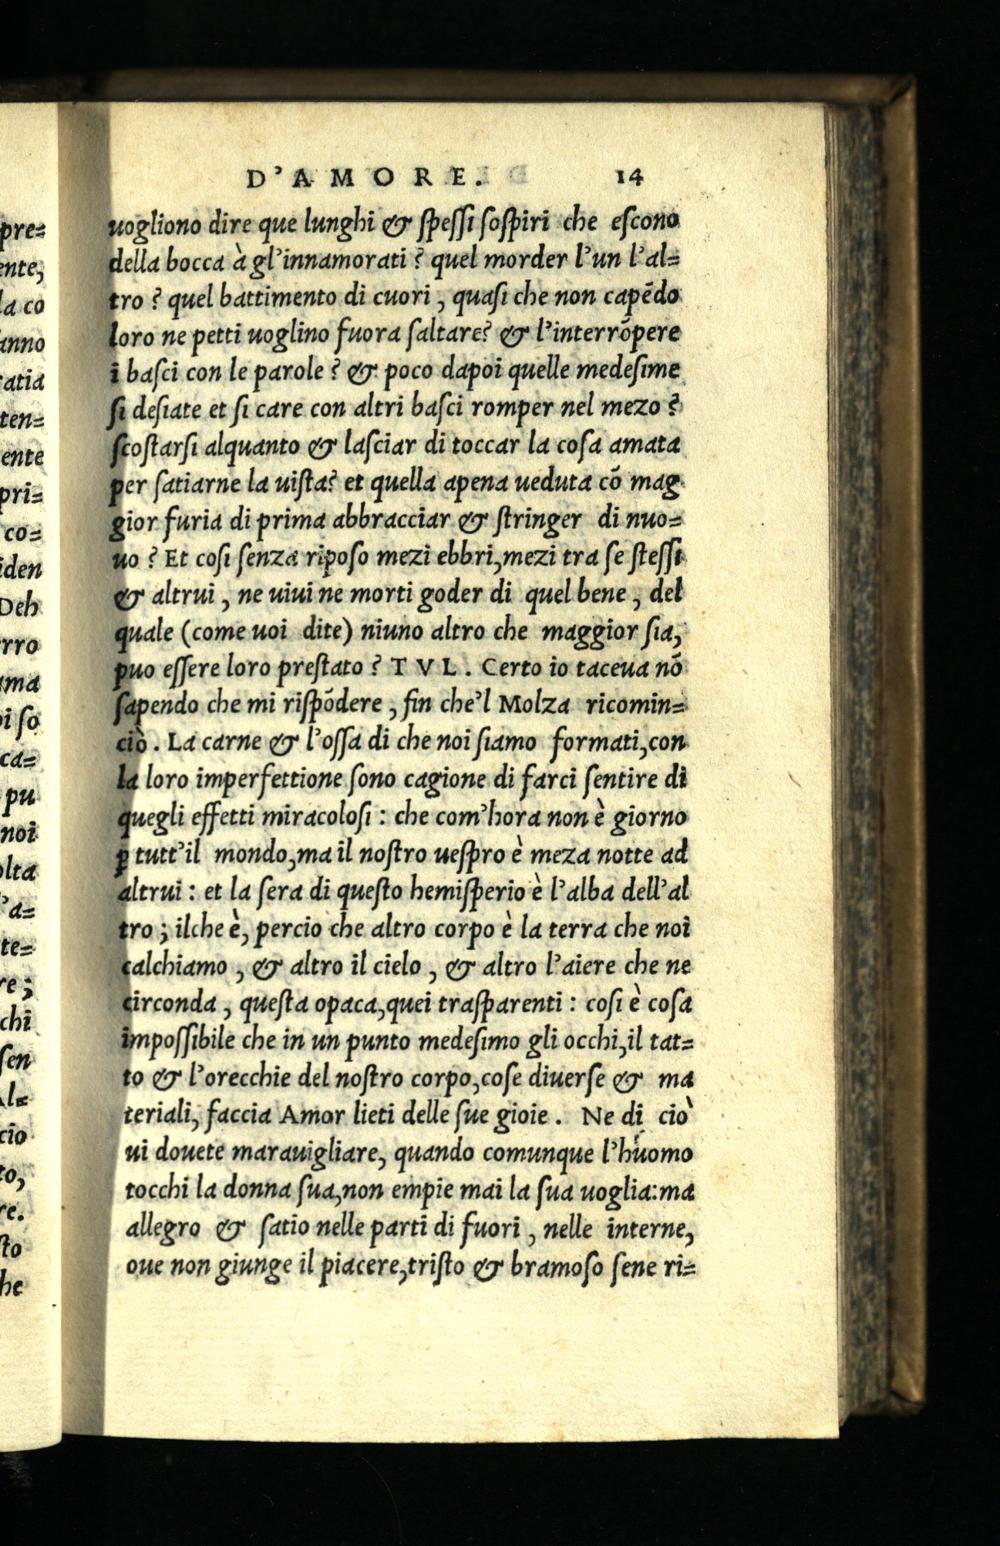 D'AMORE. 14
uogliono dire que lunghi & ſpeſſi ſoſpiri che eſcono
della bocca à gl'innamorati ? quel morder l'un l'al=
tro ? quel battimento di cuori , quaſi che non capēdo
loro ne petti uoglino fuora ſaltare? & l'interrōpere
i baſci con le parole ? & poco dapoi quelle medeſime
ſi deſiate et ſi care con altri baſci romper nel mezo ?
ſcoſtarſi alquanto & laſciar di toccar la coſa amata
per ſatiarne la uiſta? et quella apena ueduta cō mag
gior furia di prima abbracciar & ſtringer di nuo=
uo ? Et coſi ſenza ripoſo mezi ebbri,mezi tra ſe ſteſſi
& altrui , ne uiui ne morti goder di quel bene , del
quale (come uoi dite) niuno altro che maggior ſia,
puo eſſere loro preſtato ? TVL. Certo io taceua nō
ſapendo che mi riſpōdere , fin che'l Molza ricomin=
ciò . La carne & l'oſſa di che noi ſiamo formati,con
la loro imperfettione ſono cagione di farci ſentire di
quegli effetti miracoloſi : che com'hora non è giorno
ꝑ tutt'il mondo,ma il noſtro ueſpro è meza notte ad
altrui : et la ſera di queſto hemiſperio è l'alba dell'al
tro ; ilche è, percio che altro corpo è la terra che noi
calchiamo , & altro il cielo , & altro l'aiere che ne
circonda , queſta opaca,quei traſparenti : coſi è coſa
impoſſibile che in un punto medeſimo gli occhi,il tat=
to & l'orecchie del noſtro corpo,coſe diuerſe & ma
teriali, faccia Amor lieti delle ſue gioie . Ne di ciò
ui douete marauigliare, quando comunque l'huomo
tocchi la donna ſua,non empie mai la ſua uoglia:ma
allegro & ſatio nelle parti di fuori , nelle interne,
oue non giunge il piacere,triſto & bramoſo ſene ri=
pre=
ente,
la co
anno
ratia
ten=
ente
pri=
co=
iden
Deh
rro
ma
oi ſo
ca=
pu
noi
olta
'a=
te=
re ;
chi
ſen
Al=
cio
to,
re.
ſto
he